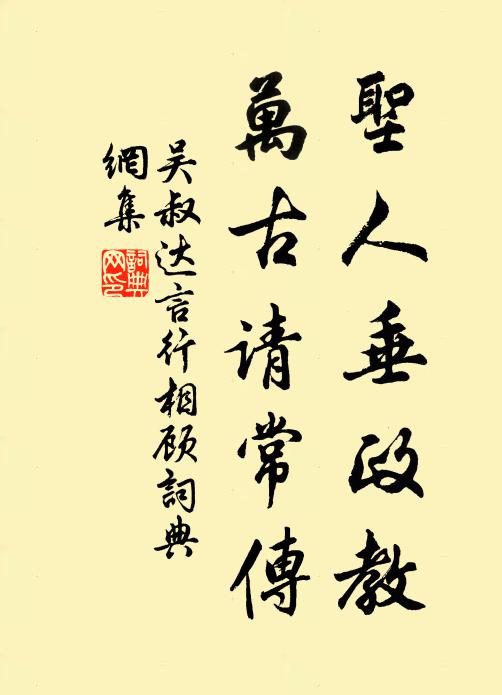 聖人垂政教
萬古请常傳
吴叔达言行相顾詞典
網集
詞典網印